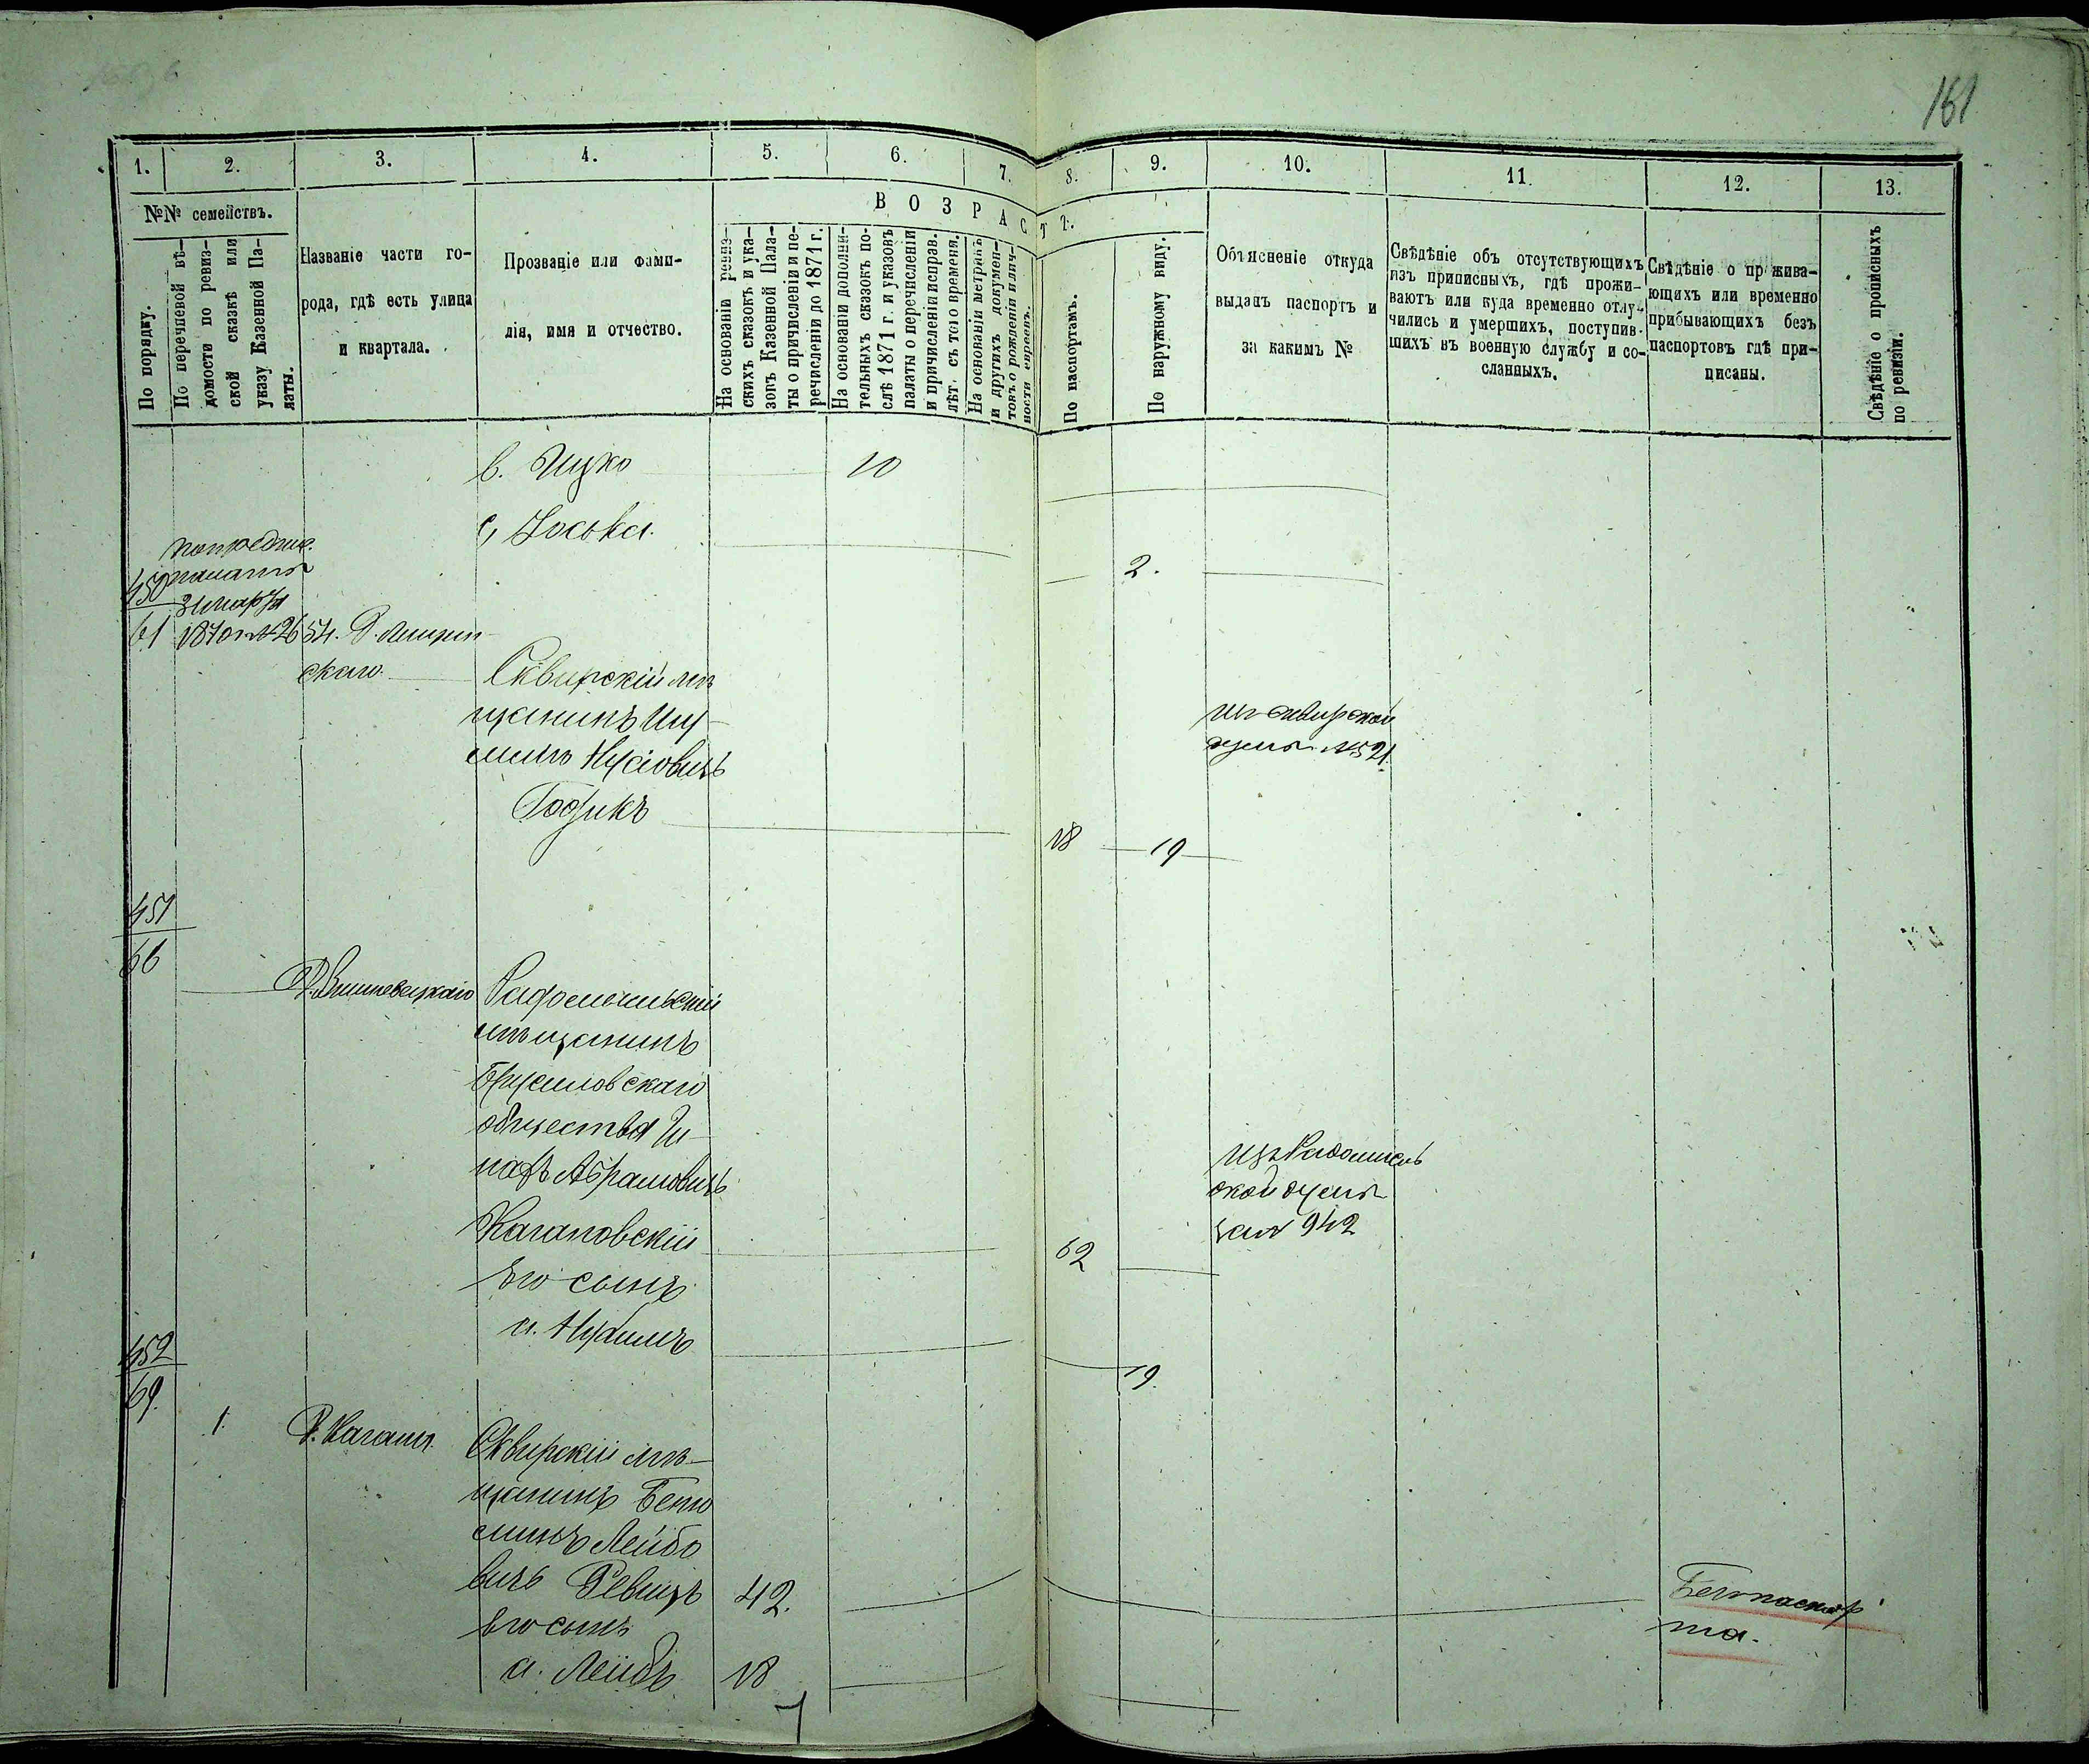 161
1.
2.
3.
4.
5.
6.
7.
8.
9.
10.
11.
12.
13.
№№ семействъ.
ВОЗРАСТЪ.
По порядку.
По перечневой вѣ-
домости по ревиз-
ской сказкѣ или
указу Казенной Па-
латы.
Названіе части го-
рода, гдѣ есть улица
и квартала.
Прозваніе или фами-
лія, имя и отчество.
На основаніи ревиз-
скихъ сказокъ и ука-
зовъ Казенной Пала-
ты о причисленіи и пе-
речисленіи до 1871 г.
На основаніи дополни-
тельныхъ сказокъ по-
слѣ 1871 г. и указовъ
палаты о перечисленіи
и причисленіи исправ.
лѣт. съ того времени.
На основаніи метрикъ
и другихъ докумен-
товъ о рожденіи и лич-
ности евреевъ.
По паспортамъ.
По наружному виду.
Объясненіе откуда
выданъ паспортъ и
за какимъ №
Свѣдѣніе объ отсутствующихъ
изъ приписныхъ, гдѣ прожи-
ваютъ или куда временно отлу-
чились и умершихъ, поступив-
шихъ въ военную службу и со-
сланныхъ.
Свѣдѣніе о прожива-
ющихъ или временно
прибывающихъ безъ
паспортовъ гдѣ при-
писаны.
Свѣдѣніе о прописныхъ
по ревизіи.
в. Ицко 10
с, Иоська 2.
450
61
палаты
3 марта
1870 г №26 54.
скаго.
Сквирскій мѣ
щанинъ
Нусіовичъ
Годикъ 18 19
из сквирской
думы №521.
451
66
Р. Вишневецкаго
Радомысльскій
мѣщанинъ
Брусиловскаго
общества
Абрамовичъ
Кагановскій 62
изъ Радомысль
ской думы
за № 942
Его сынъ
а. 19.
452
69.
1.
Р. Кагана
Сквирскій мѣ-
щанинъ Беню
минъ Лейбо
вичъ Ревицъ 42.
Безпаспор
та.
Его сынъ
а. Лейбъ 18